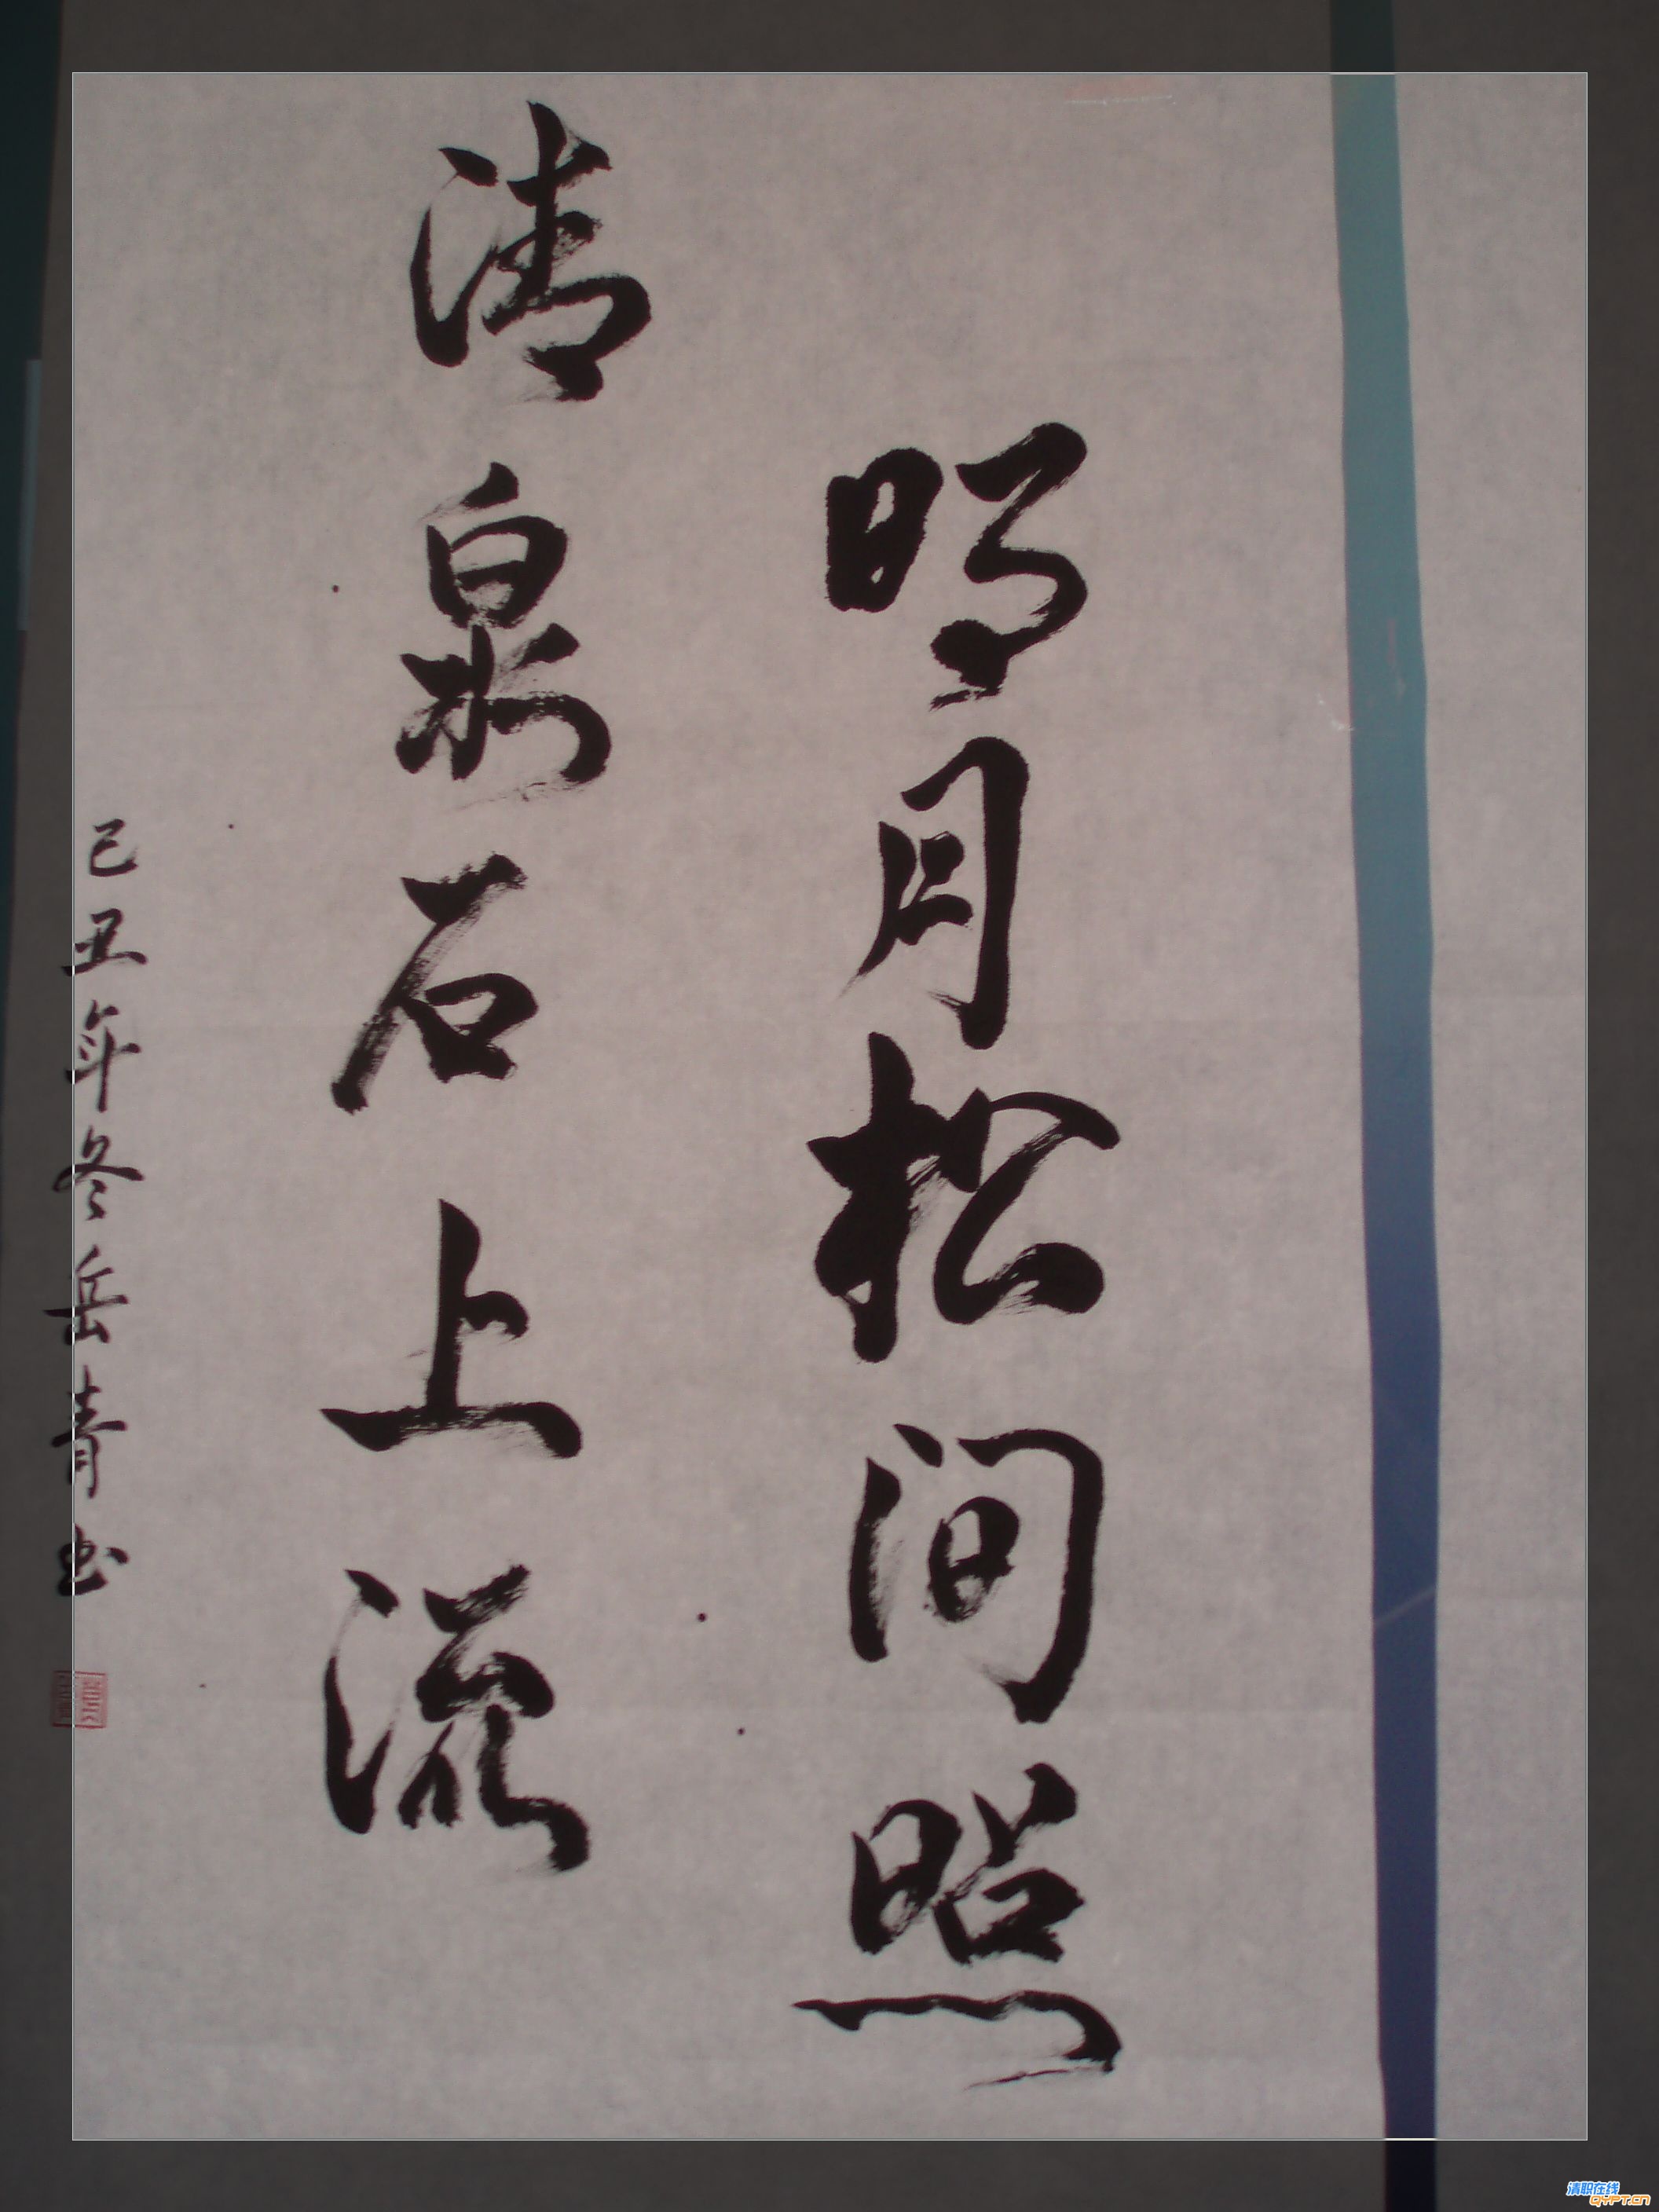 明月松间照
清泉石上流
己丑年冬岳青书
清职在线
QYPT.CN